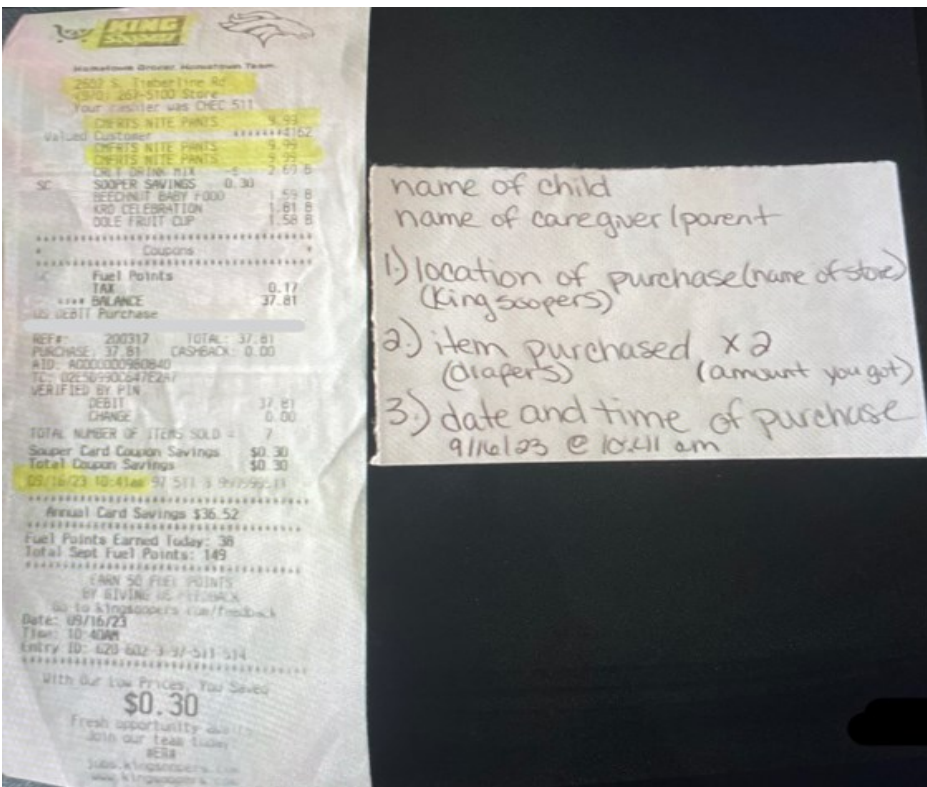 KING
Soopers
Hometown Grocer Hometown Team
S. Timberline Rd
267-5100 Store
Your cashier was CHEC 511
CMFRTS NITE PANTS 9.99
Valued Customer *******4162
CMFRTS NITE PANTS 9.99
CMFRTS NITE PANTS 9.99
DRINK MIX
SC SOOPER SAVINGS 0.30
BEECHNUT BABY FOOD 1.59 B
KRO CELEBRATION 1.81 B
DOLE FRUIT CUP 1.58 B
Coupons
Fuel Points
TAX 0.17
**** BALANCE 37.81
US DEBIT Purchase
REF#: 200317 TOTAL: 37.81
PURCHASE: 37.81 CASHBACK: 0.00
AID:
TC:
VERIFIED BY PIN
DEBIT 37.81
CHANGE 0.00
TOTAL NUMBER OF ITEMS SOLD = 7
Sooper Card Coupon Savings $0.30
Total Coupon Savings $0.30
09/16/23 10:41am 97 511 3
Annual Card Savings $36.52
Fuel Points Earned Today: 38
Total Sept Fuel Points: 149
EARN 50 FUEL POINTS
BY GIVING US FEEDBACK
Go to kingsoopers.com/feedback
Date: 09/16/23
Time: 10:40AM
Entry ID:
With Our Low Prices, You Saved
$0.30
Fresh opportunity
Join our team today
jobs.kingsoopers.com
www.kingsoopers.com
name of child
name of caregiver/parent
1.) location of purchase (name of store)
(King soopers)
2.) item purchased x2
(diapers) (amount you got)
3.) date and time of purchase
9/16/23 @ 10:41 am